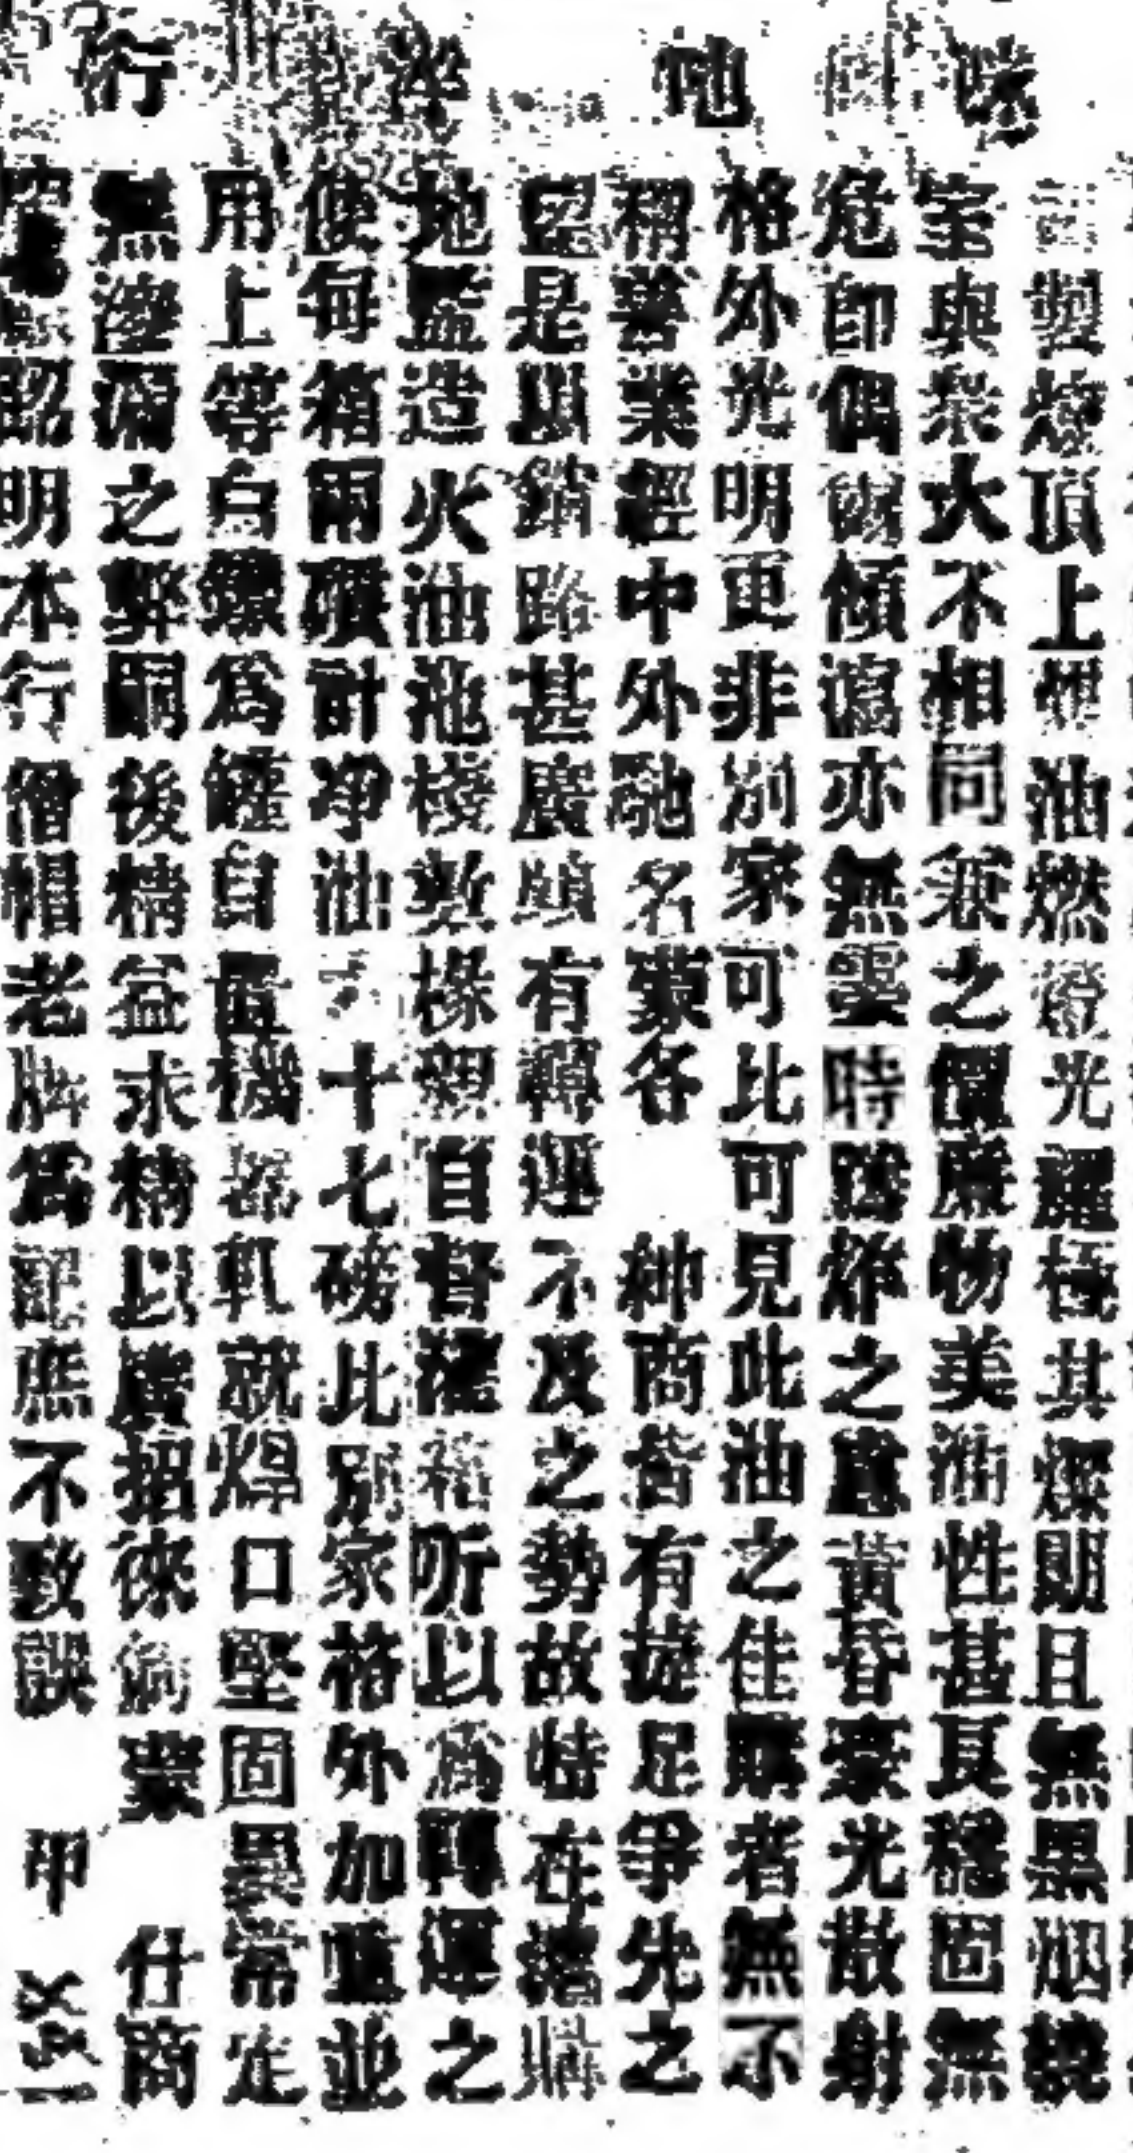 咪吔洋行
製燈頂上煙油燃澄光耀極其燦朗且無黑烟繞
室與衆大不相同兼之價廉物美油性甚良穩固無
危即偶爾傾瀉亦無雲時踐炸之慮黃昏豪光散射
格外光明更非別家可比可見此油之佳購者無不
稱善業經中外馳名蒙各
紳商皆有捷足爭先之
望是以銷路甚廣頗有轉運不及之勢故特在滬購
地監造火油池棧數椽親自督裝箱听以為轉運之
便每箱兩礶計净油 十七磅比別家格外加重並
用上等白鐵為罐自置機器軋就焊口堅固異常定
無滲漏之弊嗣後精益求精以廣招徠倘蒙
仕商
昭明本行僧帽老牌為記庶不致誤
甲